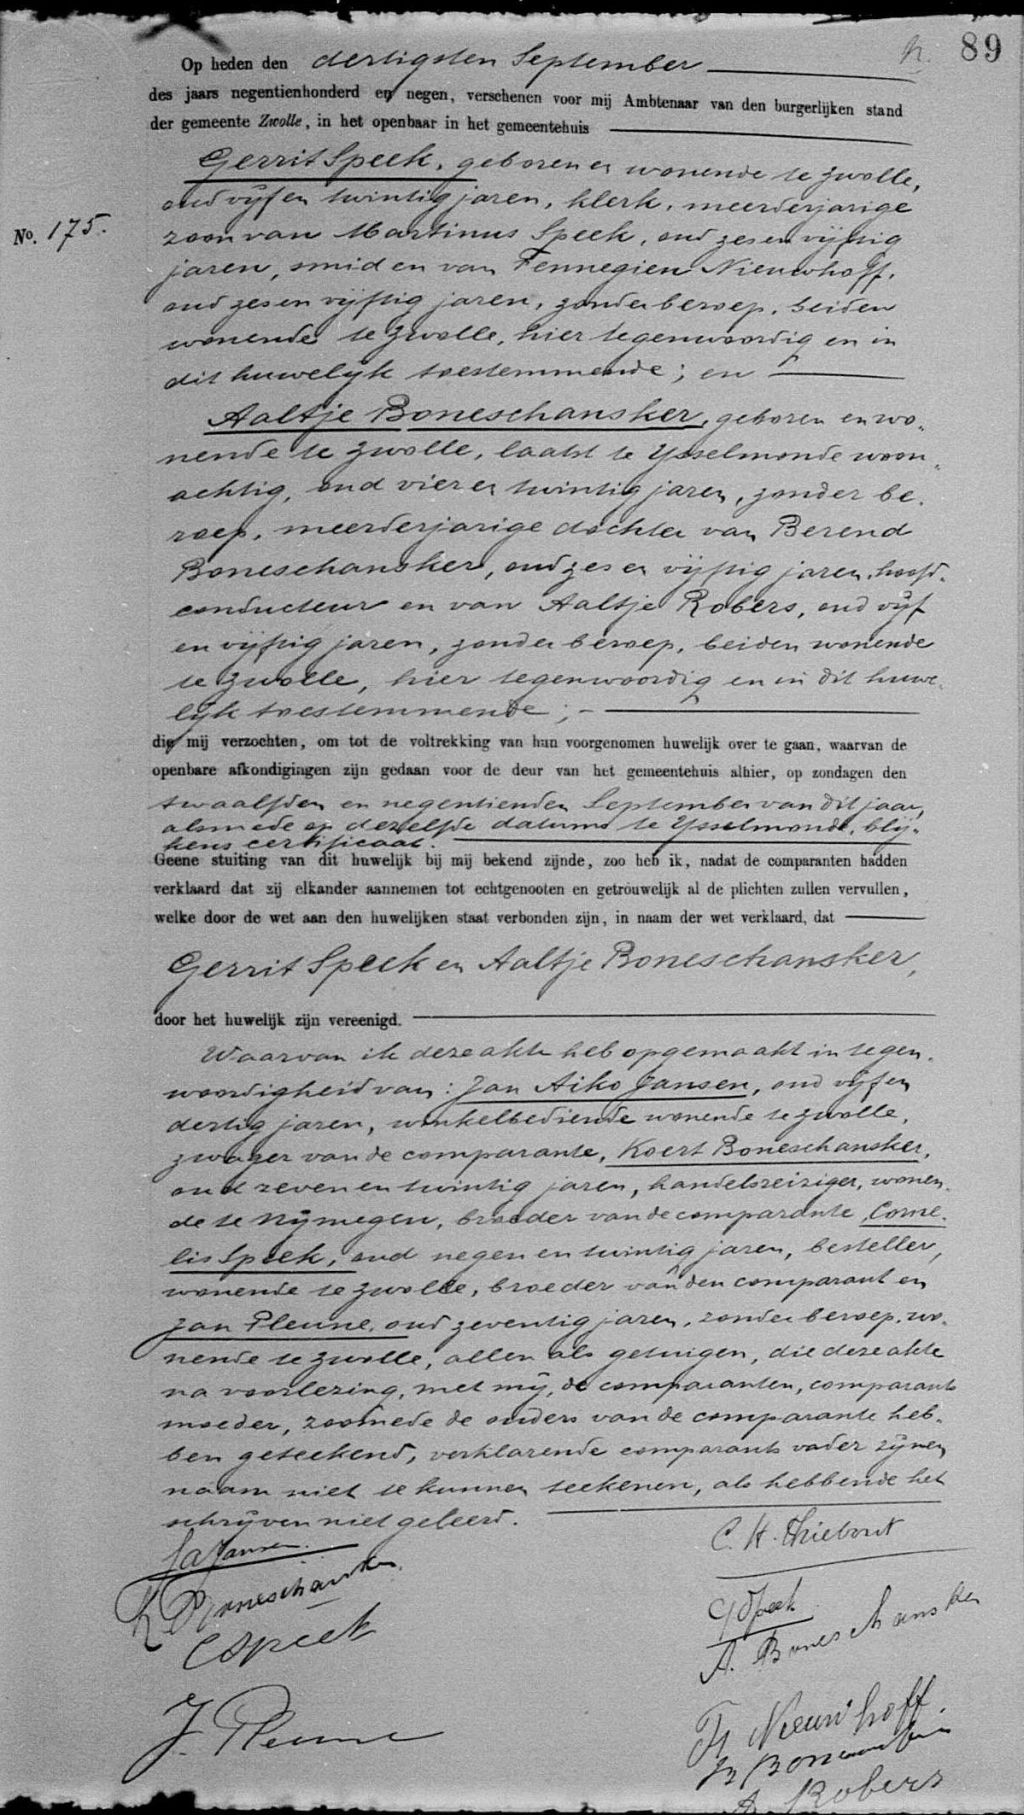 89
Op heden den dertigsten September
des jaars negentienhonderd en negen, verschenen voor mij Ambtenaar van den burgerlijken stand
der gemeente Zwolle, in het openbaar in het gemeentehuis
Gerrit Speek, geboren en wonende te Zwolle,
oud vijf en twintig jaren, klerk, meerderjarige
No. 175.
zoon van Martinus Speek, oud zes en vijftig
jaren, smid en van Fennegien Nieuwhoff,
oud zes en vijftig jaren, zonder beroep, beiden
wonende te Zwolle, hier tegenwoordig en in
dit huwelijk toestemmende; en
Aaltje Boneschansker, geboren en wo-
nende te Zwolle, laatst te Ysselmonde woon-
achtig, oud vier en twintig jaren, zonder be-
roep, meerderjarige dochter van Berend
Boneschansker, oud zes en vijftig jaren, hoofd-
conducteur en van Aaltje Robers, oud vijf
en vijftig jaren, zonder beroep, beiden wonende
te Zwolle, hier tegenwoordig en in dit huwe-
lijk toestemmende;
die mij verzochten, om tot de voltrekking van hun voorgenomen huwelijk over te gaan, waarvan de
openbare afkondigingen zijn gedaan voor de deur van het gemeentehuis alhier, op zondagen den
twaalfden en negentienden September van dit jaar,
alsmede op dezelfde datums te Ysselmonde, blij-
kens certificaat.
Geene stuiting van dit huwelijk bij mij bekend zijnde, zoo heb ik, nadat de comparanten hadden
verklaard dat zij elkander aannemen tot echtgenooten en getrouwelijk al de plichten zullen vervullen,
welke door de wet aan den huwelijken staat verbonden zijn, in naam der wet verklaard, dat
Gerrit Speek en Aaltje Boneschansker,
door het huwelijk zijn vereenigd.
Waarvan ik deze akte heb opgemaakt in tegen-
woordigheid van: Jan Aiko Jansen, oud vijf en
dertig jaren, winkelbediende wonende te Zwolle,
zwager van de comparante, Koert Boneschansker,
oud zeven en twintig jaren, handelsreiziger, wonen-
de te Nijmegen, broeder van de comparante, Corne-
lis Speek, oud negen en twintig jaren, besteller,
wonende te Zwolle, broeder van den comparant en
Jan Pleune, oud zeventig jaren, zonder beroep, wo-
nende te Zwolle, allen als getuigen, die deze akte
na voorlezing, met mij, de comparanten, comparants
moeder, zoomede de ouders van de comparante heb-
ben geteekend, verklarende comparants vader zijnen
naam niet te kunnen teekenen, als hebbende het
schrijven niet geleerd.
C. H. Thiebout
J A Jansen.
K Boneschansker.
G Speek
A. Boneschansker
C Speek
F. Nieuwhoff.
J. Pleune
B Boneschansker
A Robers